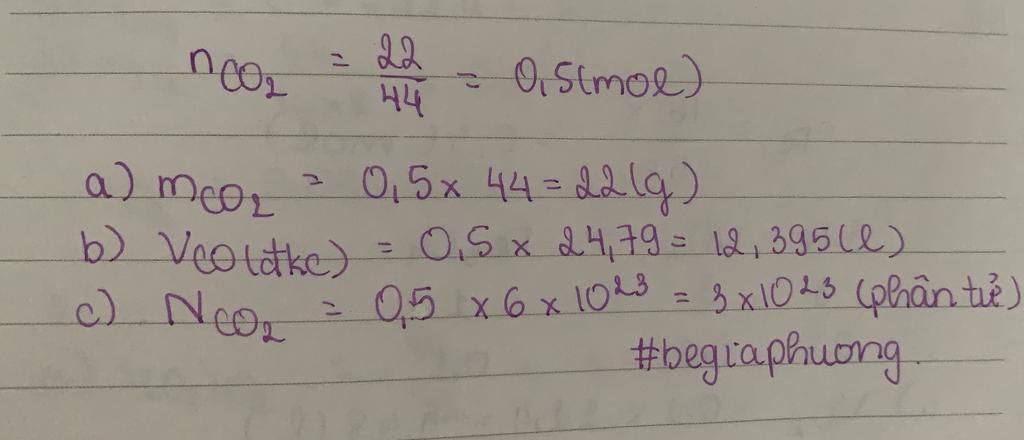 nCO₂ = 22/44 = 0,5(mol)
a) mCO₂ = 0,5 x 44 = 22(g)
b) VCO(đkc) = 0,5 x 24,79 = 12,395(l)
c) NCO₂ = 0,5 x 6 x 10²³ = 3 x 10²³ (phân tử)
#begiaphuong.